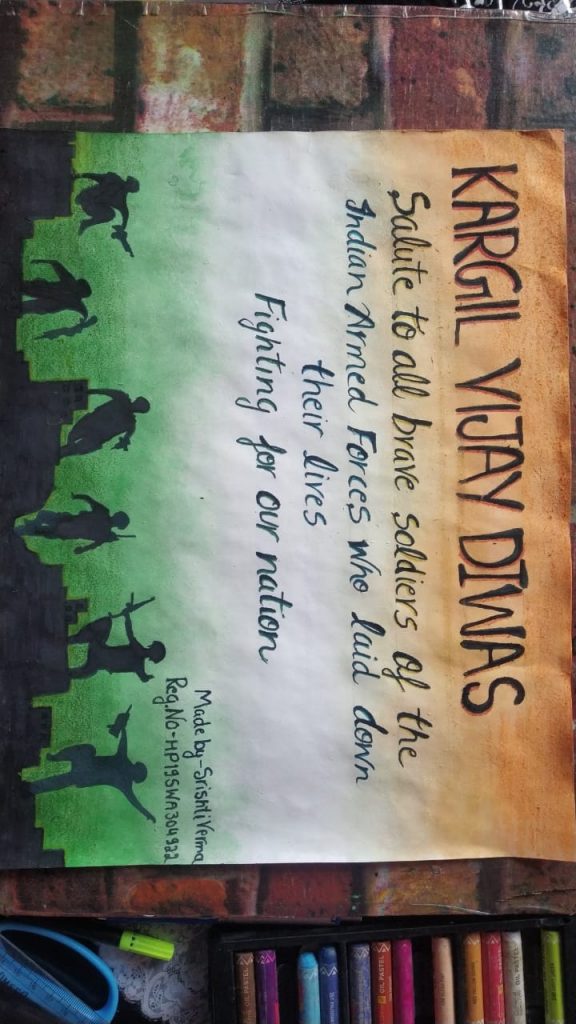 KARGIL VIJAY DIWAS
Salute to all brave soldiers of the
Indian Armed Forces who laid down
their lives
Fighting for our nation
Made by-Srishti Verma
Reg.No-HP19SWA304922